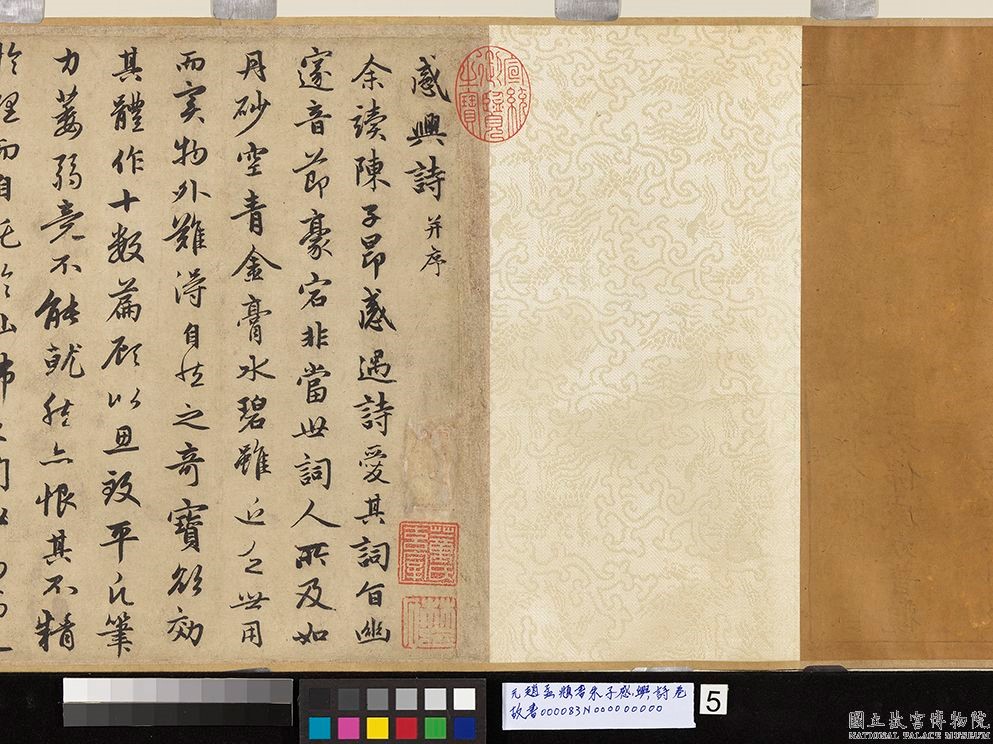 感興詩 并序
余讀陳子昂感遇詩愛其詞旨幽
邃音節豪宕非當世詞人所及如
丹砂空青金膏水碧雖近乏世用
而實物外難得自然之奇寶欲効
其體作十數篇顧以思致平凡筆
力萎弱竟不能就然亦恨其不精
於理而自託於仙佛之間
宣統御覽之寶
元趙孟頫書朱子感興詩卷
故書000083N000000000
5
國立故宮博物院
NATIONAL PALACE MUSEUM